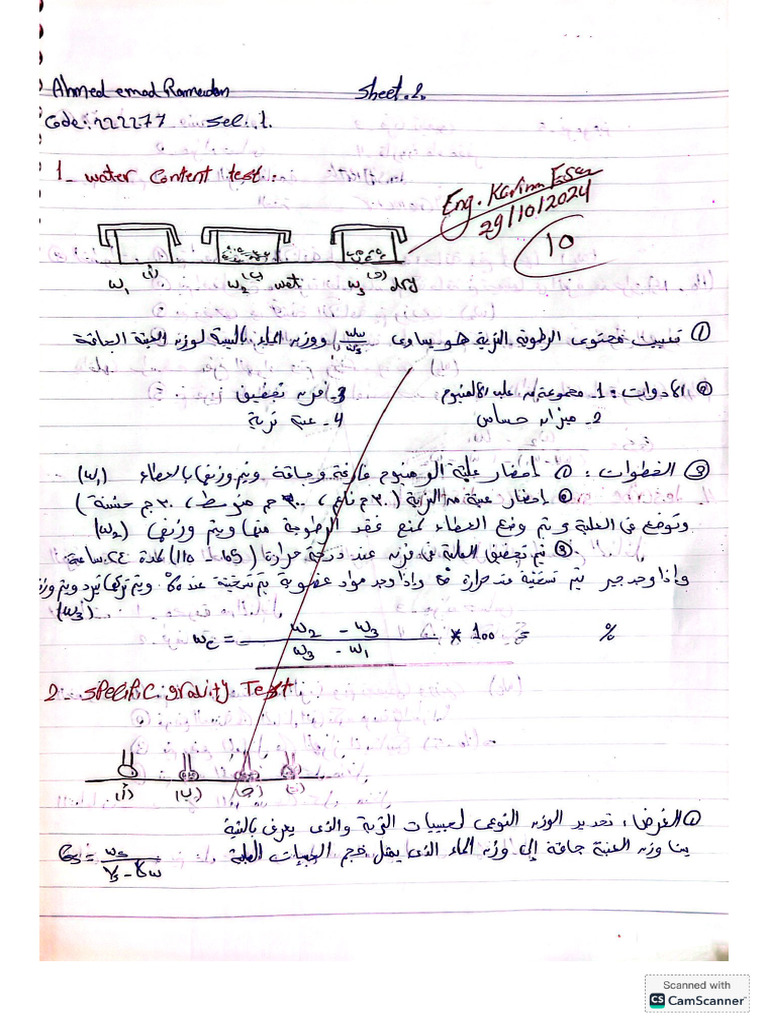 Ahmed emad Ramadan Sheet.2.
Code: 222277 sec: 1.
1- water content test.
Eng. Karim Essa
29/10/2024
10
w1 (أ) w2 (ب) wet w3 (ج) dry
① تعيين محتوى الرطوبة التربة هو يساوى ww/ws ووزن الماء بالنسبة لوزن العينة الجافة
② الأدوات: 1- مجموعة من علب الألمنيوم 3- فرن تجفيف
2- ميزان حساس 4- عينة تربة
③ الخطوات: ① إحضار علبة الومنيوم فارغة وجافة ويتم وزنها بالغطاء (w1)
② إحضار عينة من التربة (٣٠ جم ناعم، ٣٠٠ جم متوسط، ٣٠ جم خشنة)
وتوضع فى العلبة ويتم وضع الغطاء لمنع فقد الرطوبة منها ويتم وزنها (w2)
③ تم تجفيف العلبة فى فرن عند درجة حرارة (105 - 110) لمدة ٢٤ ساعة
وإذا وجد جير يتم تسخينه عند حرارة واذا وجد مواد عضوية يتم تسخينه عند 60. ويتم تركها تبرد ويتم
(w3)
wc = w2 - w3 / w3 - w1 * 100 = %
2- specific gravity Test
(أ) (ب) (ج) (د)
① الغرض: تحديد الوزن النوعى لحبيبات التربة والذى يعرف بالنسبة
بين وزن العينة جافة إلى وزن الماء الذى يمثل حجم الحبيبات الصلبة. Gs = ws / Vs - γw
Scanned with
CS CamScanner